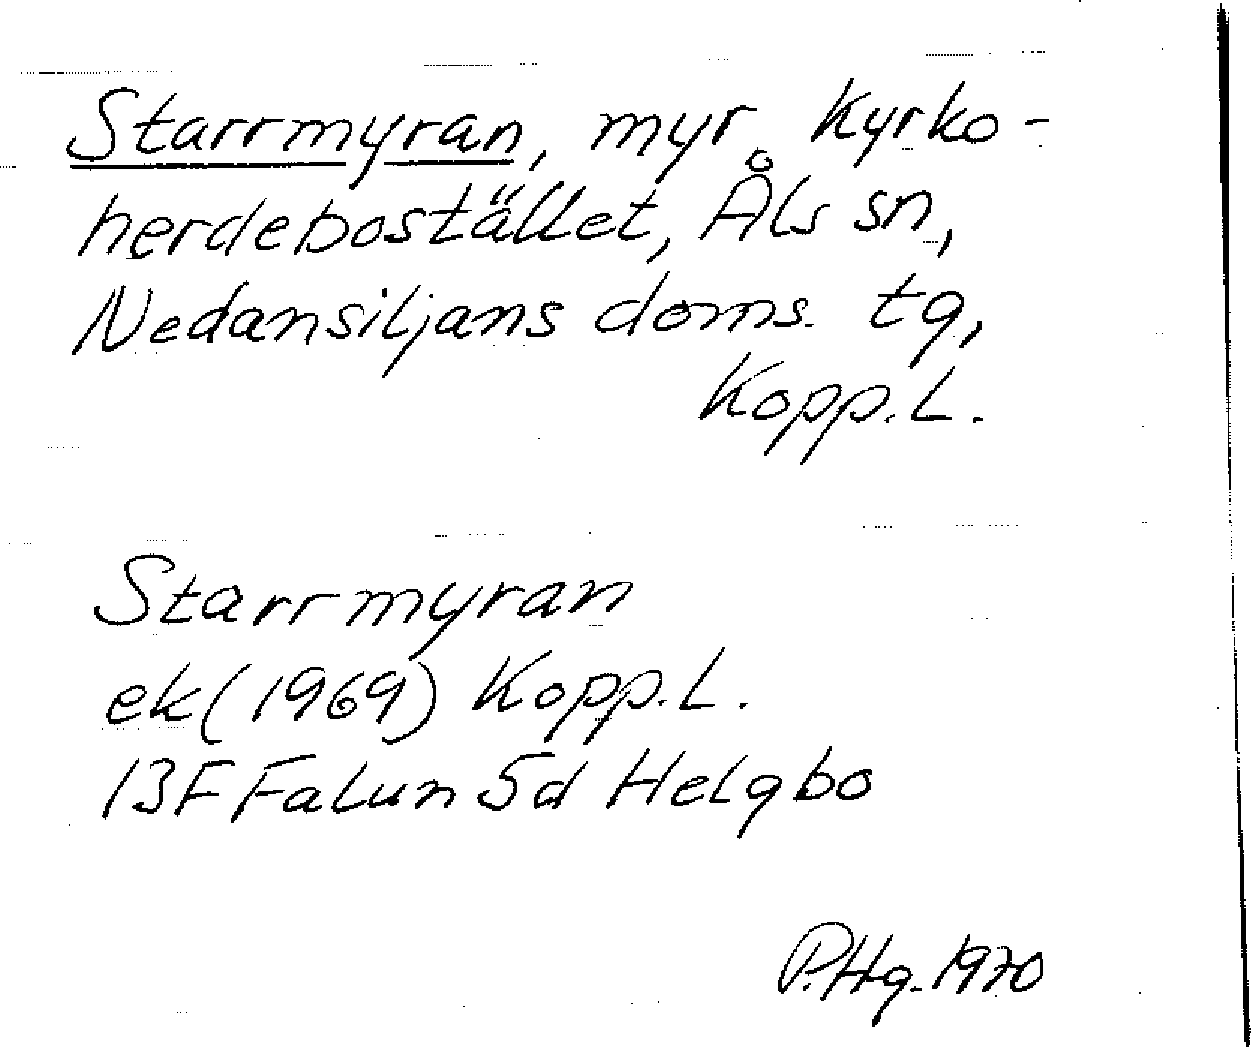 Starrmyran, myr, Kyrko-
herdebostället, Åls sn,
Nedansiljans doms. tg,
Kopp.L.
Starrmyran
ek(1969) Kopp.L.
13F Falun 5d Helgbo
P.Hg.1970